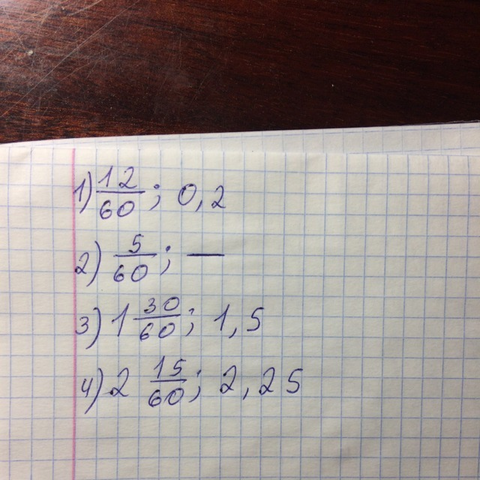 1) 12/60; 0,2
2) 5/60; —
3) 1 30/60; 1,5
4) 2 15/60; 2,25